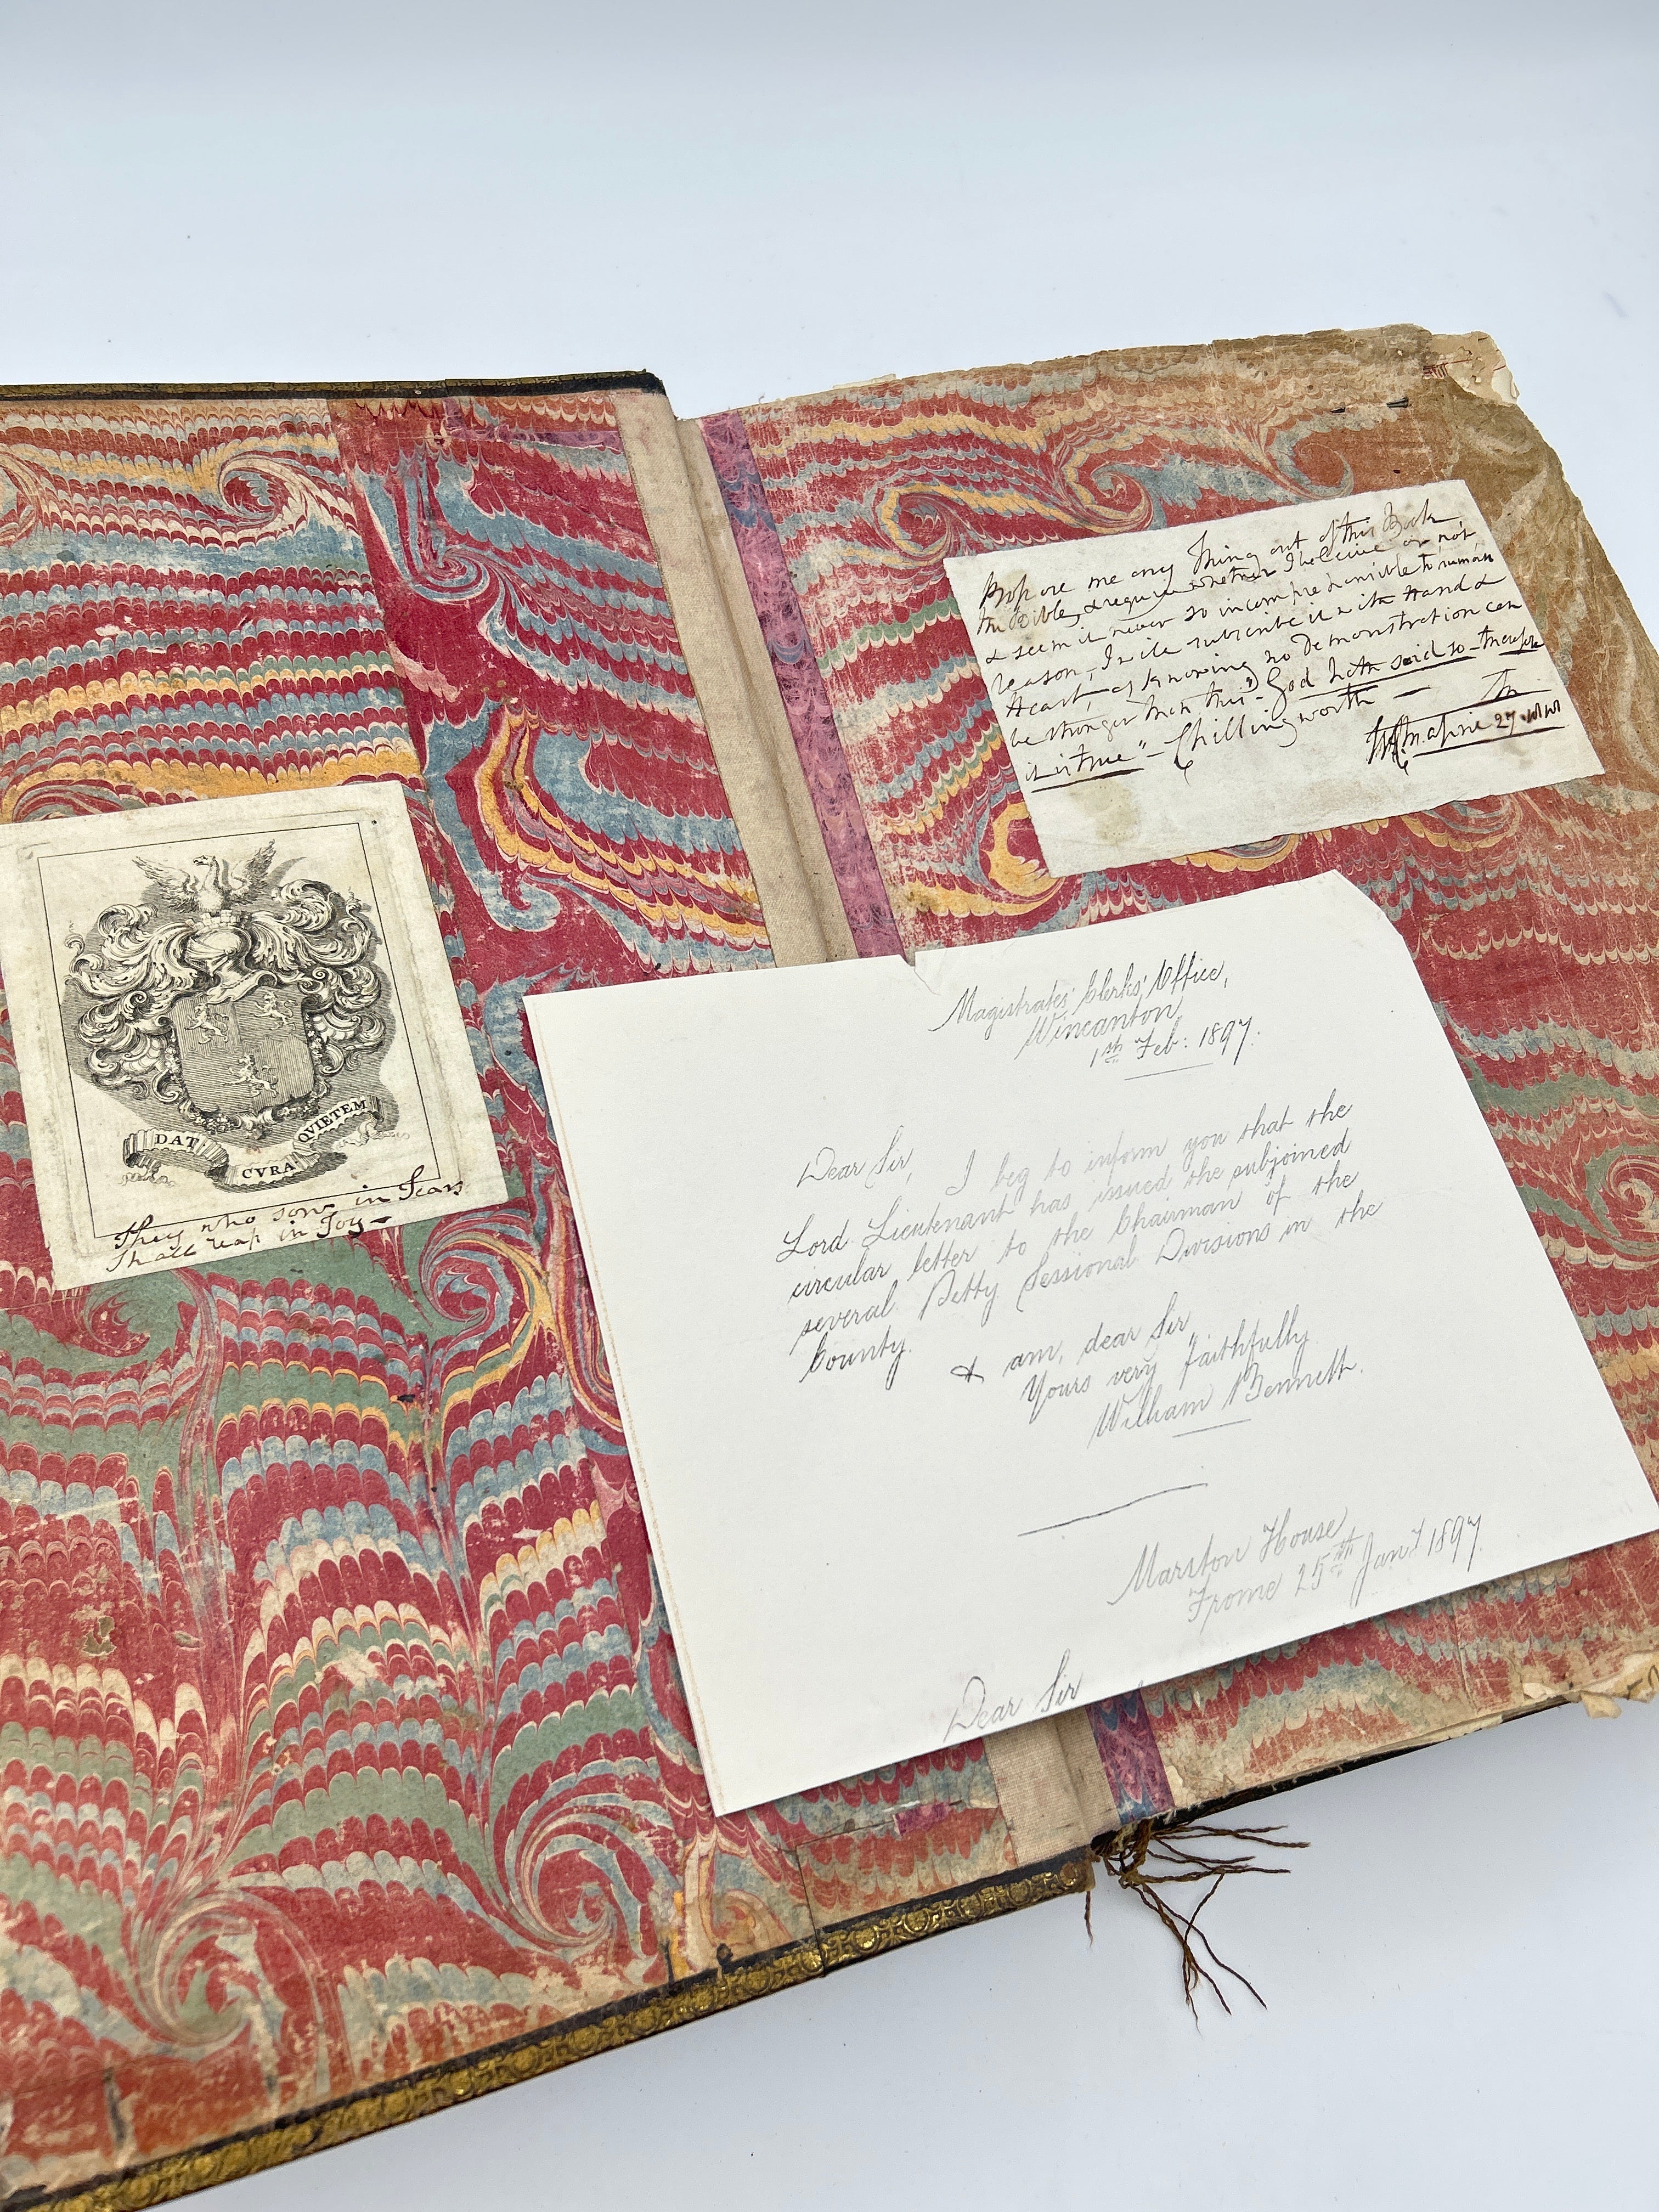 DAT CVRA QVIETEM
They who sow in Tears
Shall reap in Joy -
Propose me any Thing out of this Book
the Bible, & require whether I believe or not
& seem it never so incomprehensible to human
reason, I will subscribe it with Hand &
Heart, as knowing no Demonstration can
be stronger than this "God hath said so - therefore
it is true" - Chillingworth -
27
Magistrates' Clerks' Office,
Wincanton,
1st Feb: 1897.
Dear Sir, I beg to inform you that the
Lord Lieutenant has issued the subjoined
circular letter to the Chairman of the
several Petty Sessional Divisions in the
County.
& am, dear Sir
Yours very faithfully
William Bennett.
Marston House
Frome 25th Jany 1897.
Dear Sir